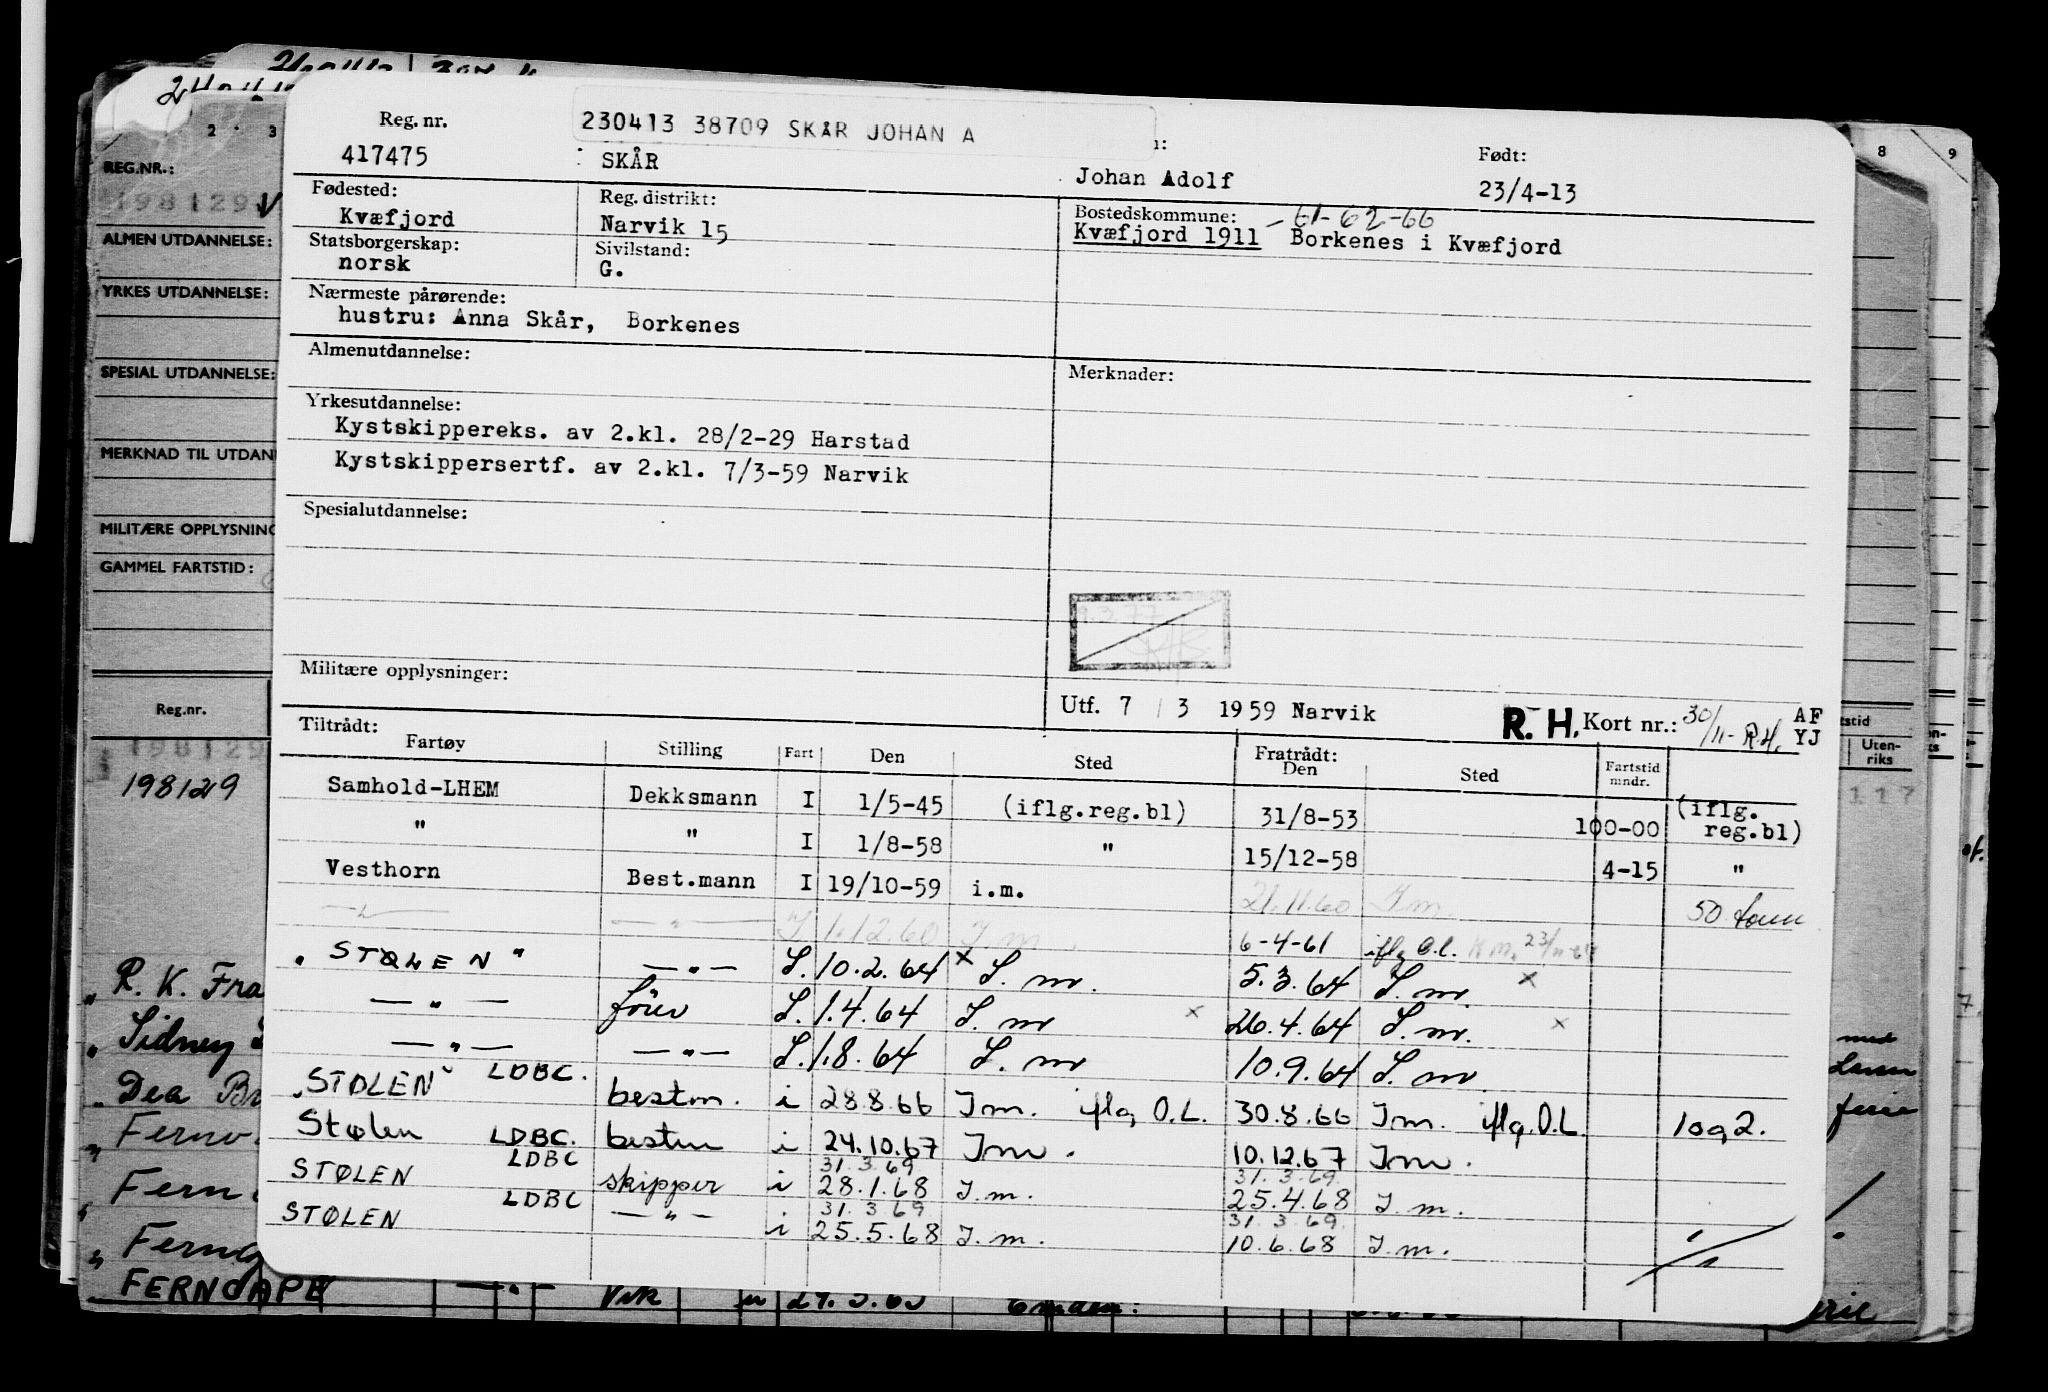 230413 38709 SKÅR JOHAN A
Reg. nr.
417475
SKÅR
Johan Adolf
Født:
23/4-13
Fødested:
Kvæfjord
Reg. distrikt:
Narvik 15
Bostedskommune: -61-62-66
Kvæfjord 1911 Borkenes i Kvæfjord
Statsborgerskap:
norsk
Sivilstand:
G.
Nærmeste pårørende:
hustru: Anna Skår, Borkenes
Almenutdannelse:
Merknader:
Yrkesutdannelse:
Kystskippereks. av 2.kl. 28/2-29 Harstad
Kystskippersertf. av 2.kl. 7/3-59 Narvik
Spesialutdannelse:
9.3.77
Militære opplysninger:
Utf. 7 / 3 1959 Narvik
R. H. Kort nr.: 30/11- R.H. AF
YJ
Tiltrådt:
Fartøy Stilling Fart Den Sted Fratrådt: Den Sted Fartstid mndr.
Samhold-LHEM Dekksmann I 1/5-45 (iflg.reg.bl) 31/8-53 100-00 (iflg. reg.bl)
" " I 1/8-58 " 15/12-58 4-15 "
Vesthorn Best.mann I 19/10-59 i.m. 21.11.60 I m. 50 tonn
— " — — " — I 1.12.60 I. m. 6-4-61 iflg O.l.
" STØLEN " — " — I. 10.2.64 x I. m. 5.3.64 I. m. x
— " — förer I. 1.4.64 I. m x 26.4.64 I. m. x
— " — — " — I. 1.8.64 I. m 10.9.64 I. m.
"STØLEN" LDBC. bestm. i 28.8.66 I m. iflg O.L. 30.8.66 I m. iflg. O.L. 1 og 2.
Stølen LDBC. bestm i 24.10.67 I m. 10.12.67 I m.
31.3.69 31.3.69
STØLEN LDBC skipper i 28.1.68 I. m. 25.4.68 I. m.
31.3.69 31.3.69
STØLEN LDBC — " — i 25.5.68 I. m. 10.6.68 I. m.
2 3
8 9
REG.NR.:
198129
ALMEN UTDANNELSE:
YRKES UTDANNELSE:
SPESIAL UTDANNELSE:
MERKNAD TIL UTDAN
MILITÆRE OPPLYSNING
GAMMEL FARTSTID:
Reg.nr.
198129
198129
Uten-
riks
117
" R. K. Fra
" Sidney
" Dea Br
" Fern
" Fern
" Fern
FERNCAPE — " — 24.5.65 Emden.